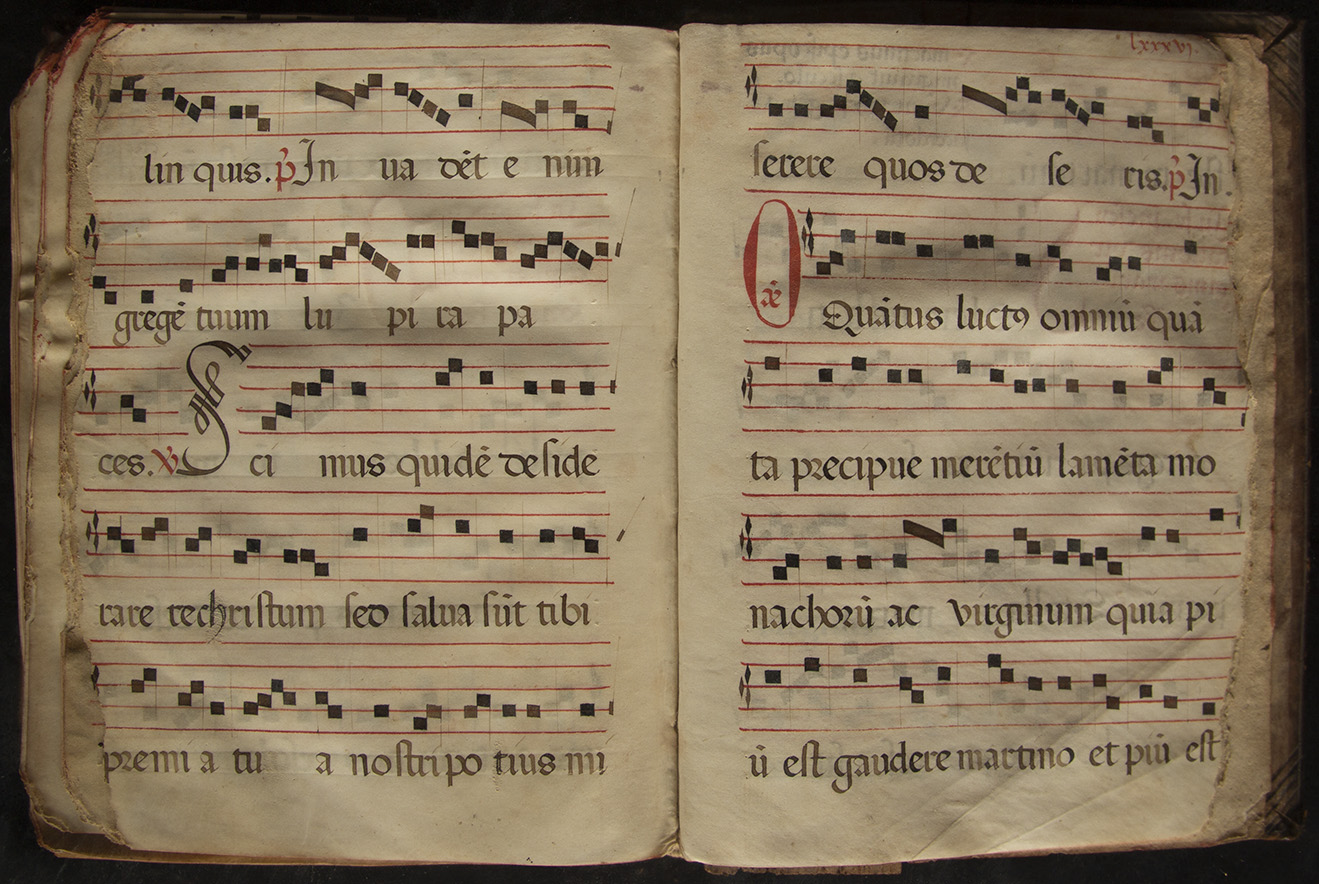 lin quis. p̄ In ua dēt e nim
gregē tuum lu pi ra pa
ces. ℣ Sci mus quidē deside
rare te christum sed salua sūt tibi
premi a tu a nostri po tius mi
lxxxvi.
serere quos de se ris. p̄ In.
O Quātus luctꝰ omniū quā
ta precipue merētiū lamēta mo
nachorū ac virginum quia pi
ū est gaudere martino et piū est